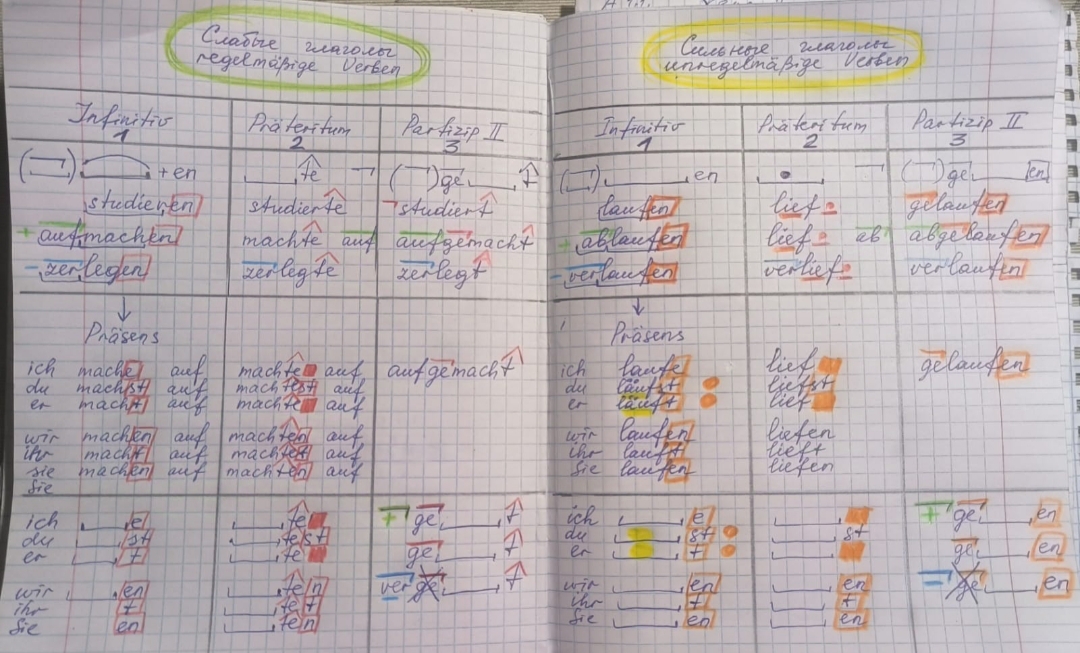 Слабые глаголы
regelmäßige Verben
Infinitiv Präteritum Partizip II
1 2 3
( ) + en te ( ) ge t
studieren studierte studiert
+ aufmachen machte auf aufgemacht
- zerlegen zerlegte zerlegt
Präsens
ich mache auf machte auf aufgemacht
du machst auf machtest auf
er macht auf machte auf
wir machen auf machten auf
ihr macht auf machtet auf
sie machen auf machten auf
Sie
ich e te + ge t
du st test ge t
er t te
ver ge t
wir en ten
ihr t tet
Sie en ten
Сильные глаголы
unregelmäßige Verben
Infinitiv Präteritum Partizip II
1 2 3
( ) en ( ) ge en
laufen lief gelaufen
+ ablaufen lief ab abgelaufen
- verlaufen verlief verlaufen
Präsens
ich laufe lief gelaufen
du läufst liefst
er läuft lief
wir laufen liefen
ihr lauft lieft
Sie laufen liefen
ich e + ge en
du st st
er t ge en
- ge en
wir en en
ihr t t
Sie en en